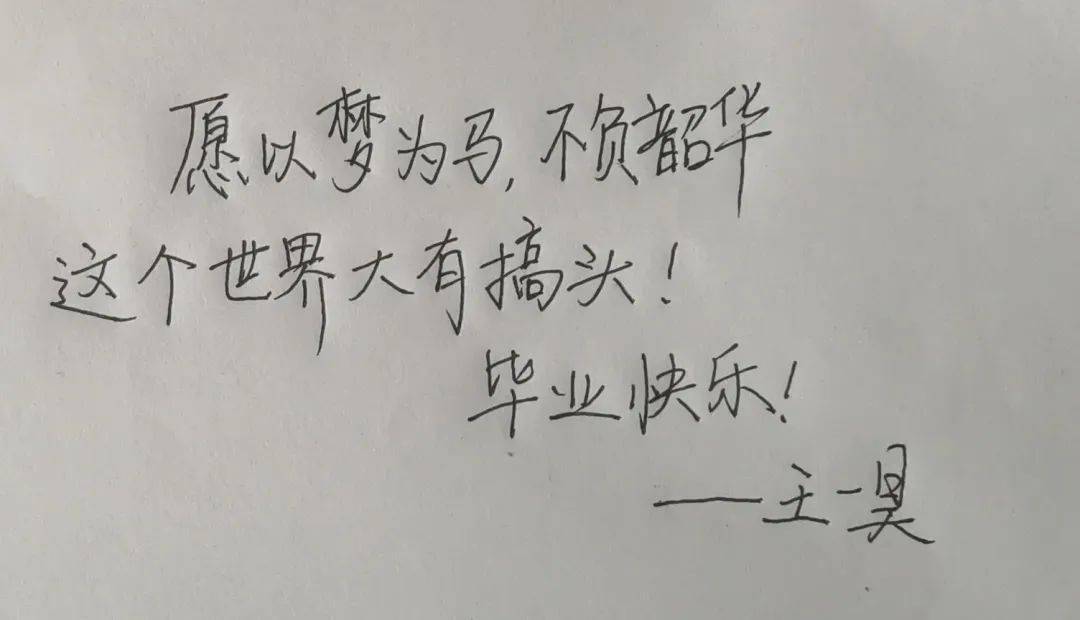 愿以梦为马,不负韶华
这个世界大有搞头!
毕业快乐!
——王一昊